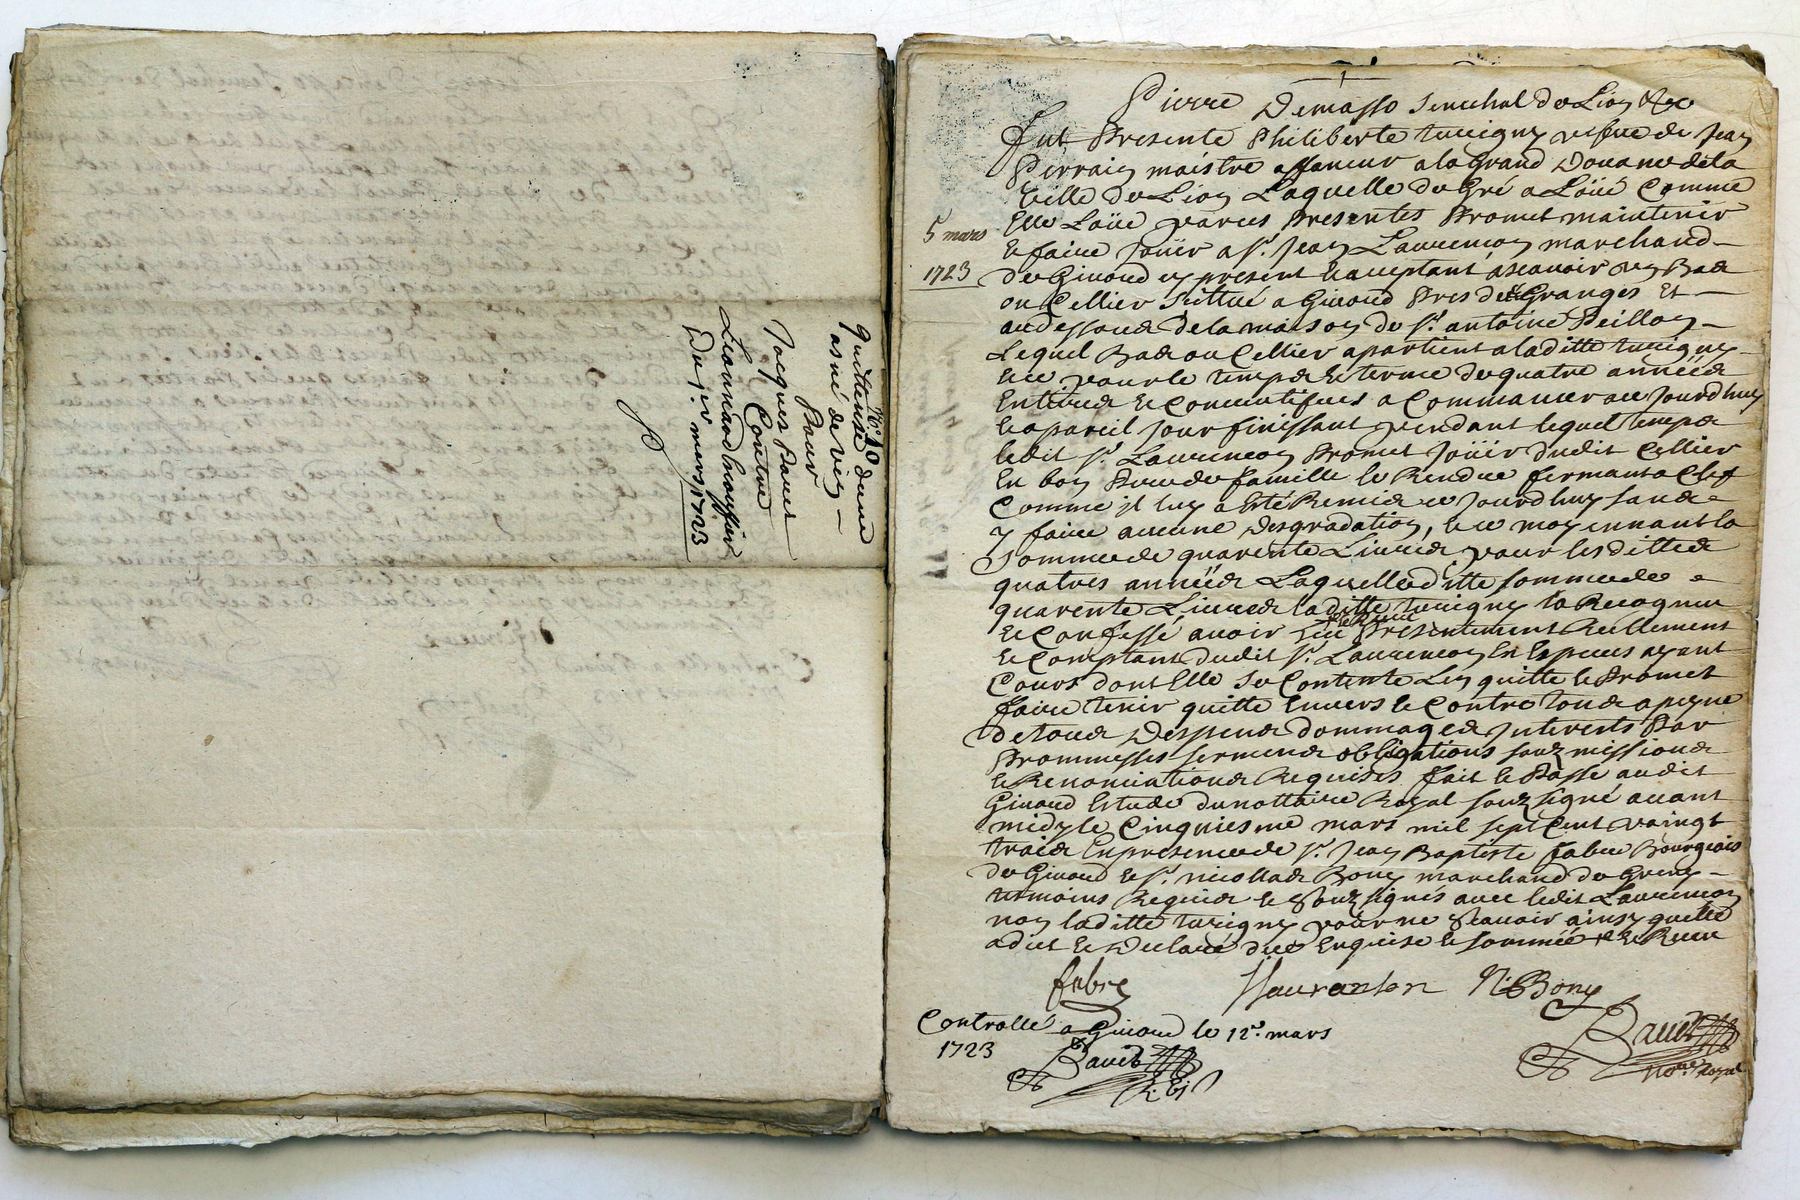 No. 10
quittance dune
asné de vin
Pour
Jacques Pauet
Contre
Leonnard broussier
Du jer. mars 1723
Pierre Demasso Senechal de Lion &c
fut Presente Philiberte turrigny vefve de Jean
Perrain maistre affaneur a la Grand Douanne de la
Ville de Lion Laquelle de Gré a Loüé Comme
Elle Loüe par ces Presentes Promet maintenir
5 mars
& faire Joüir a Sr. Jean Laurenson marchand
1723
de Giuord cy present & acceptant ascauoir un Bas
ou Cellier scittué a Giuord Pres des Granges Et
au dessoubs de la maison de Sr. antoine Peillon
Lequel Bas ou Cellier apartient a laditte turrigny
& ce pour le temps & terme de quatre années
Entieres & Consecutifues a Commancer ce Jourdhuy
& a pareil jour finissant pendant lequel temps
ledit Sr. Laurenson Promet Joüir dudit Cellier
En bon Pere de famille le Rendre fermant a Clef
Comme jl luy a Eté Remis ce Jourdhuy sans
y faire aucune Desgradation, & ce moyennant la
Somme de quarente Liures pour lesdittes
quatres années Laquelle ditte somme de
quarente Liures laditte turrigny la Recogneu
& Confessé auoir Presentement Reellement
& Comptant dudit Sr. Laurenson En Especes ayant
Cours dont Elle se Contente Len quitte & Promet
faire tenir quitte Enuers & Contre tous a peyne
de tous Despens dommages Jnterests Par
Prommesses serments obligations soubzmissions
& Renonciations Requises fait & Passé audit
Giuord Estude du nottaire Royal soubzsigné auant
midy le Cinquiesme mars mil sept Cent vaingt
trois En presence de Sr. Jean Baptiste fabre Bourgeois
de Giuord & Sr. nicollas Bony marchand de Greny
tesmoins Requis & soubzsignés auec ledit Laurenson
non laditte turrigny pour ne Scauoir ainsy quelle
a dict & Declaré de ce Enquise & sommée & Receu
fabre Laurenson N. Bony
Controllé a Giuord le 12e. mars
1723